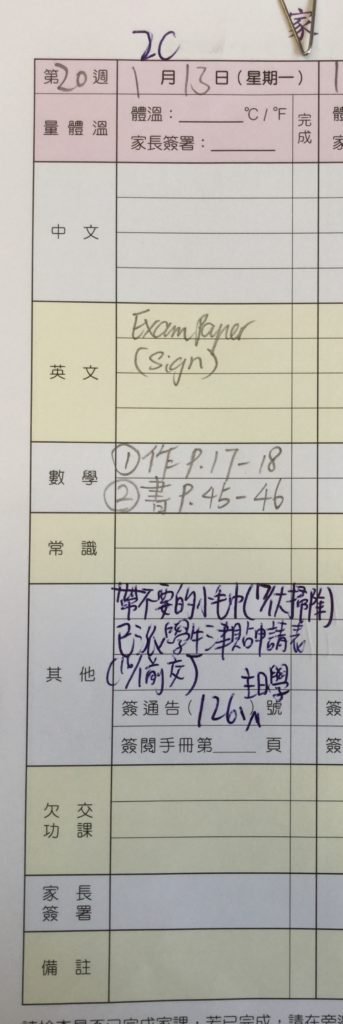 家
2C
第20週 1月13日(星期一)
量體溫 體溫：______°C/°F 完成
家長簽署：______
中文
英文 Exam Paper
(Sign)
數學 ①作 P.17-18
②書 P.45-46
常識
其他 帶不要的小毛巾(17/1大掃除)
已派學生津貼申請表
(15/1前交) 主日學
簽通告(126) 號
簽閱手冊第____頁
欠交功課
家長簽署
備註